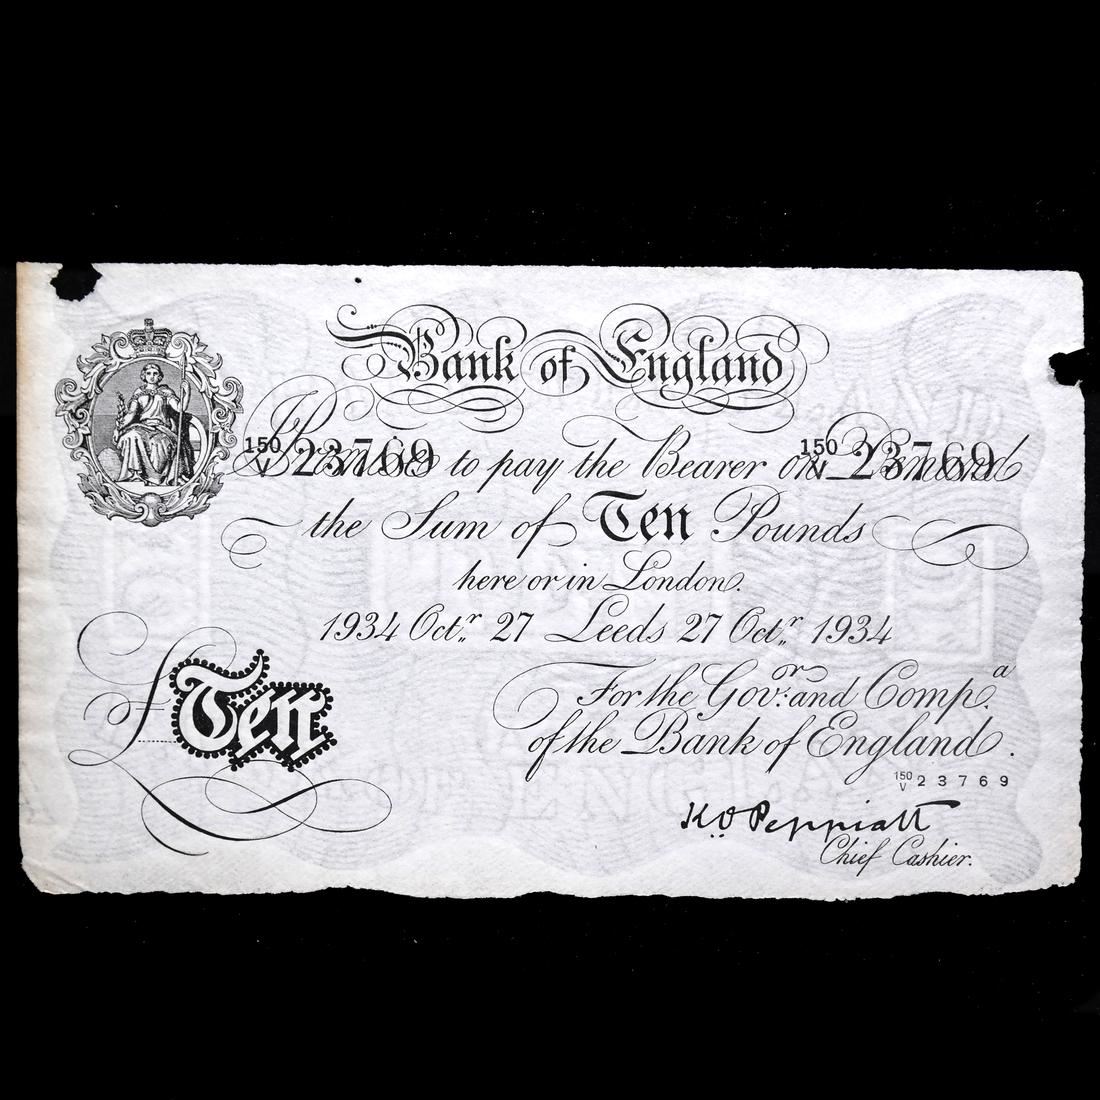 Bank of England
150/V 23769 150/V 23769
I Promise to pay the Bearer on Demand
the Sum of Ten Pounds
here or in London.
1934 Octr. 27 Leeds 27 Octr. 1934
For the Govr. and Compa.
of the Bank of England.
£Ten
150/V 23769
K.O Peppiatt
Chief Cashier.